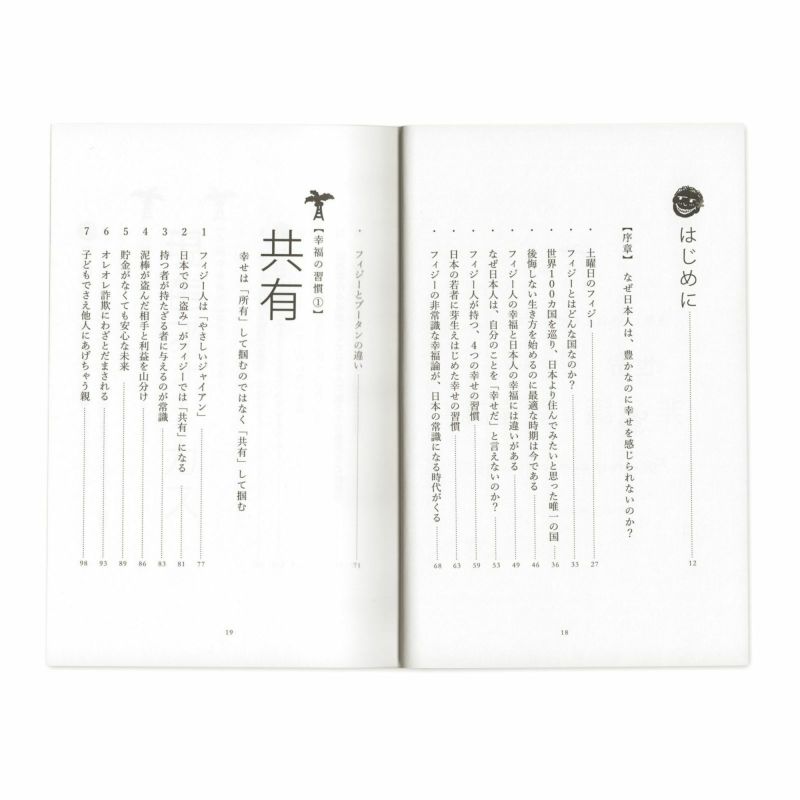 はじめに 12
【序章】 なぜ日本人は、豊かなのに幸せを感じられないのか？
・ 土曜日のフィジー 27
・ フィジーとはどんな国なのか？ 33
・ 世界100カ国を巡り、日本より住んでみたいと思った唯一の国 36
・ 後悔しない生き方を始めるのに最適な時期は今である 46
・ フィジー人の幸福と日本人の幸福には違いがある 49
・ なぜ日本人は、自分のことを「幸せだ」と言えないのか？ 53
・ フィジー人が持つ、4つの幸せの習慣 59
・ 日本の若者に芽生えはじめた幸せの習慣 63
・ フィジーの非常識な幸福論が、日本の常識になる時代がくる 68
18
・ フィジーとブータンの違い 71
【幸福の習慣①】
共有
幸せは「所有」して掴むのではなく「共有」して掴む
1 フィジー人は「やさしいジャイアン」 77
2 日本での「盗み」がフィジーでは「共有」になる 81
3 持つ者が持たざる者に与えるのが常識 83
4 泥棒が盗んだ相手と利益を山分け 86
5 貯金がなくても安心な未来 89
6 オレオレ詐欺にわざとだまされる 93
7 子どもでさえ他人にあげちゃう親 98
19